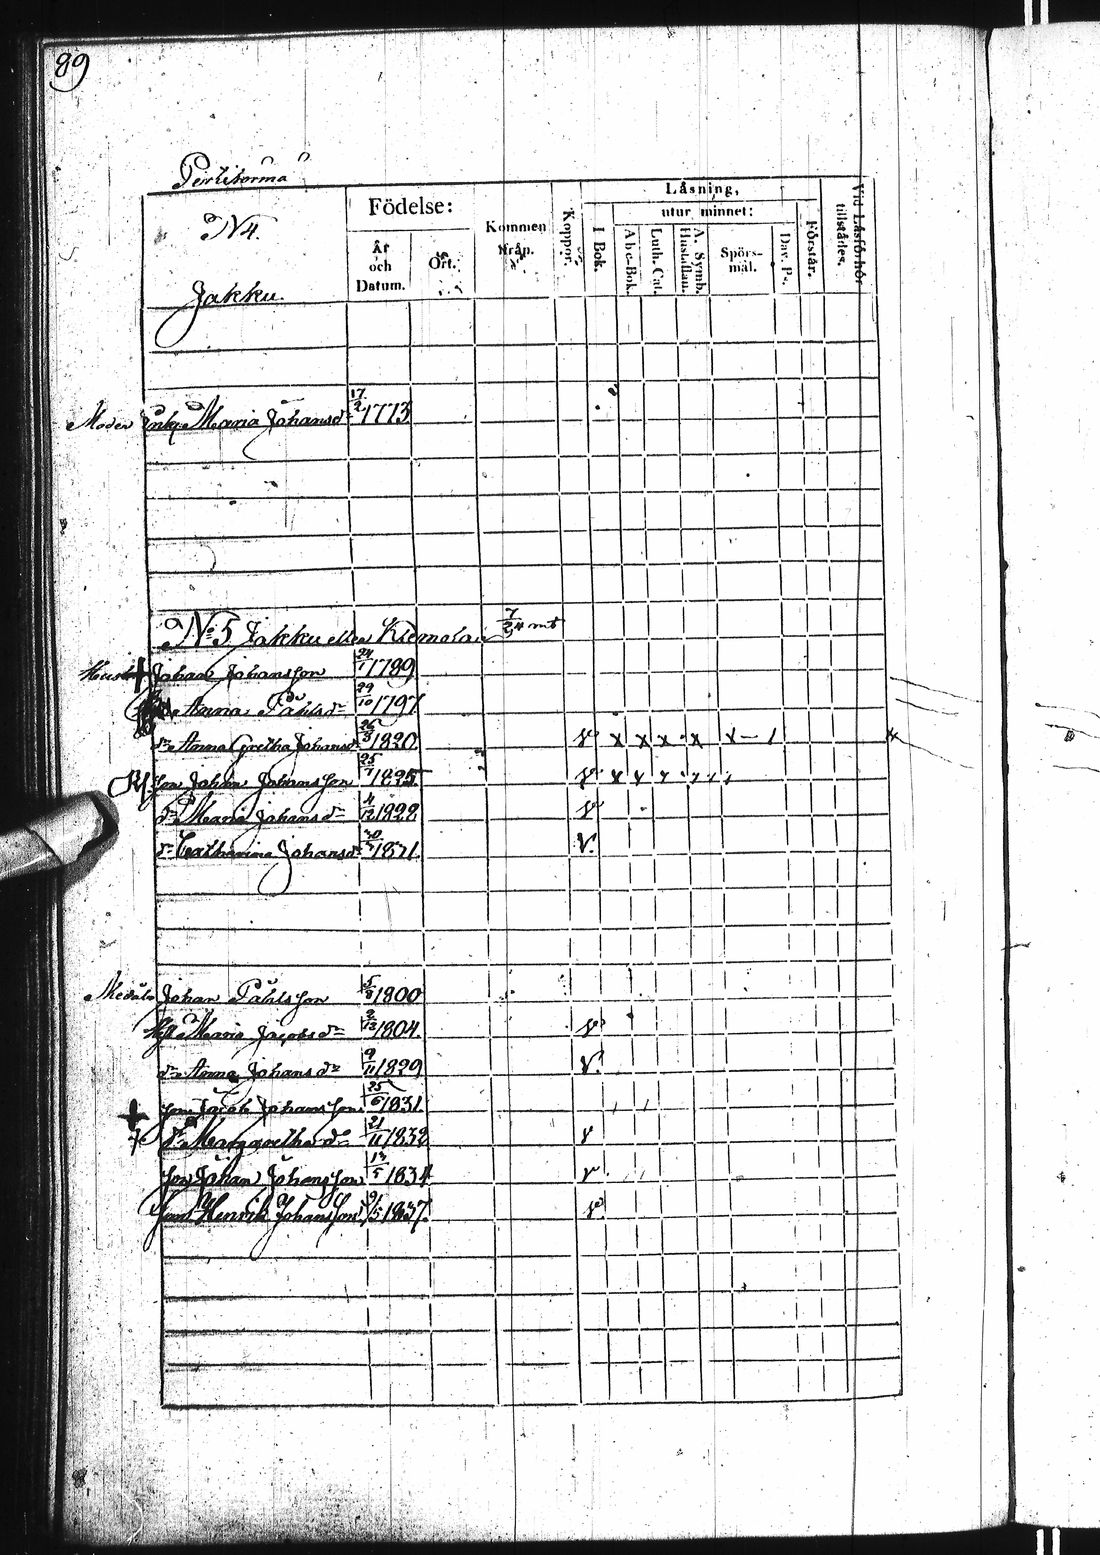 89
Perttorma
N4.
Jakku.
Födelse:
År och Datum.
Ort.
Kommen ifrån.
Koppor.
Läsning,
I Bok.
utur minnet:
Abc-Bok.
Luth. Cat.
A. Symb. Hustaflan.
Spörsmål.
Dav. Ps.
Förstår.
Vid Läsförhör tillstädes.
Enk. Maria Johansdr 17/2 1773
No 5 Jakku eller
Johan Johansson 24/1 1789
Anna Påhlsdr 29/10 1797
dr Anna Gretha Johansdr 1820 v x x x x x – 1
Son Johan Johansson 25/1 1825 v x x
dr Maria Johansdr 4/12 1828 v
dr Catharina Johansdr 1831 v
Johan Påhlsson 5/8 1800
Maria Jacobsdr 2/12 1804 v
dr Anna Johansdr 9/11 1829 v
Son Jacob Johansson 25/6 1831
dr Margaretha dr 21/11 1832 v
Son Johan Johansson 13/5 1834 v
Son Henrik Johansson 1837 v